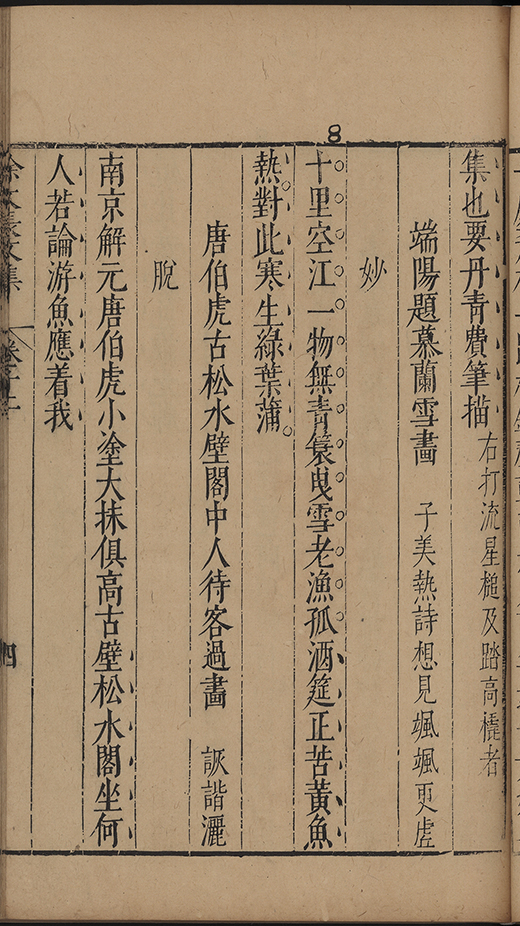 8
集也要丹青費筆描 右打流星槌及踏高橇者
端陽題慕蘭雪畵 子美熱詩想見颯颯更虛
妙
十里空江一物無青簑曳雪老漁孤酒筵正苦黃魚
熱對此寒生綠葉蒲
唐伯虎古松水壁閣中人待客過畵 詼諧灑
脫
南京解元唐伯虎小塗大抹俱高古壁松水閣坐何
人若論游魚應着我
徐文長文集 卷十二 四